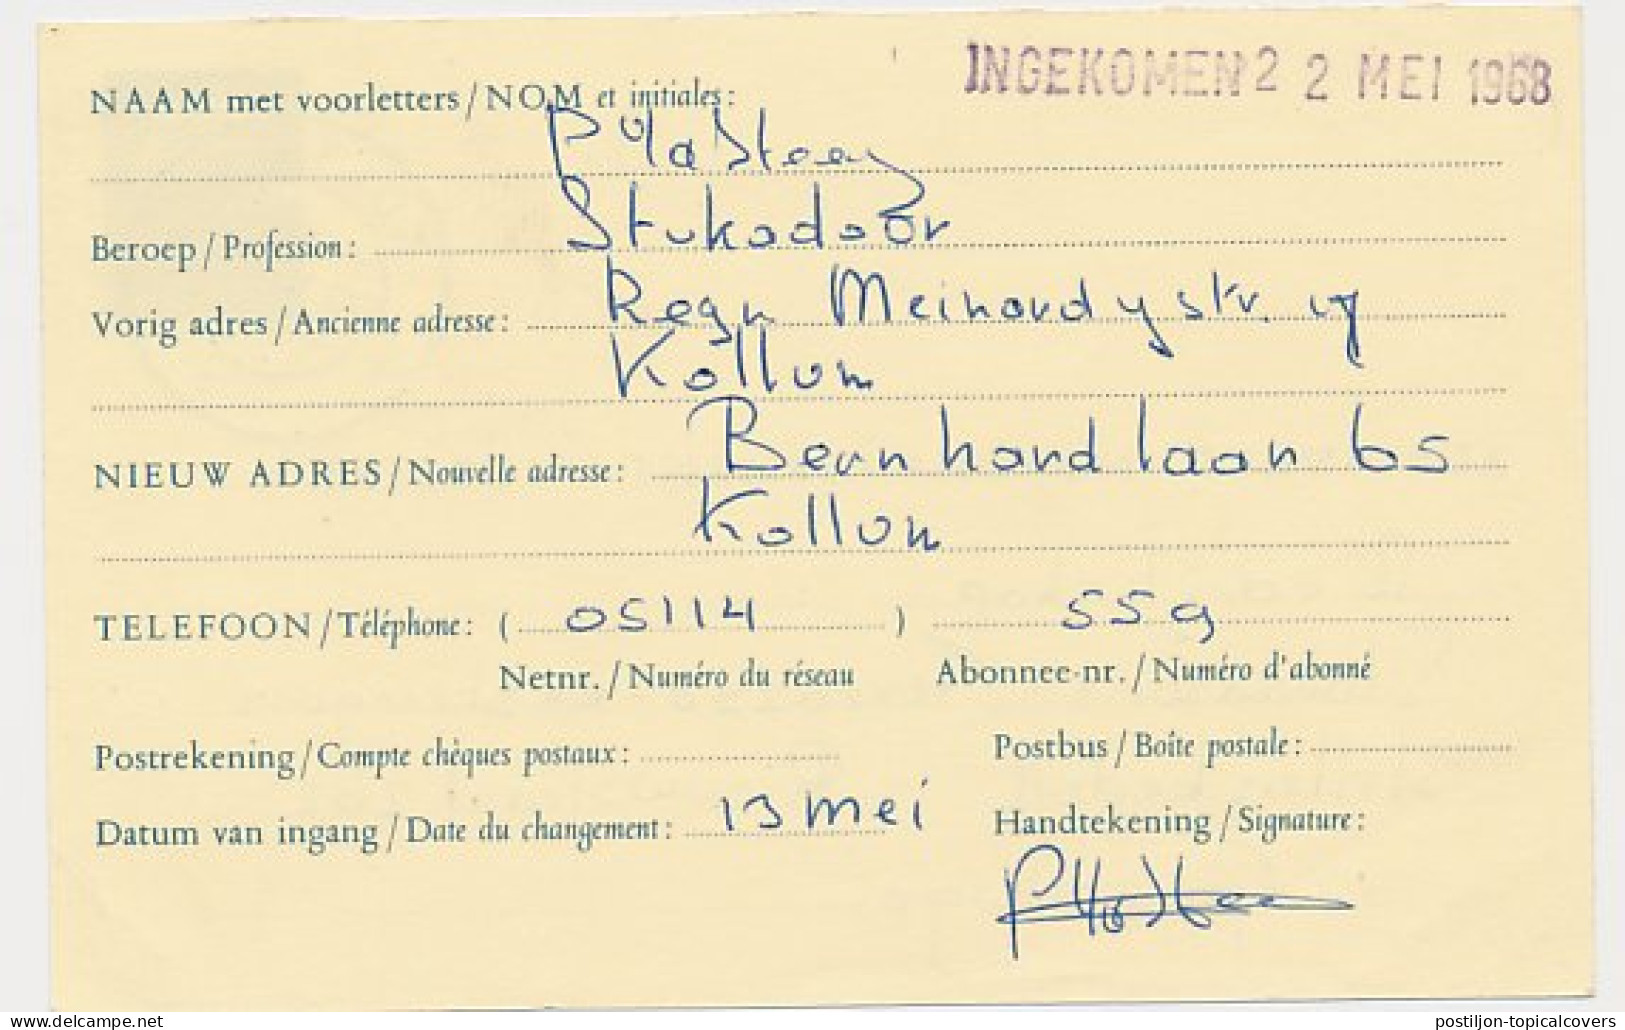 INGEKOMEN 2 2 MEI 1968
NAAM met voorletters / NOM et initiales :
Beroep / Profession : Stukadoor
Vorig adres / Ancienne adresse : Regn Meinardystr. 17
Kollum
NIEUW ADRES / Nouvelle adresse : Bernhardlaan 65
Kollum
TELEFOON / Téléphone : ( 05114 ) 559
Netnr. / Numéro du réseau Abonnee-nr. / Numéro d'abonné
Postrekening / Compte chèques postaux : Postbus / Boîte postale :
Datum van ingang / Date du changement : 13 mei Handtekening / Signature :
postiljon-topicalcovers
www.delcampe.net